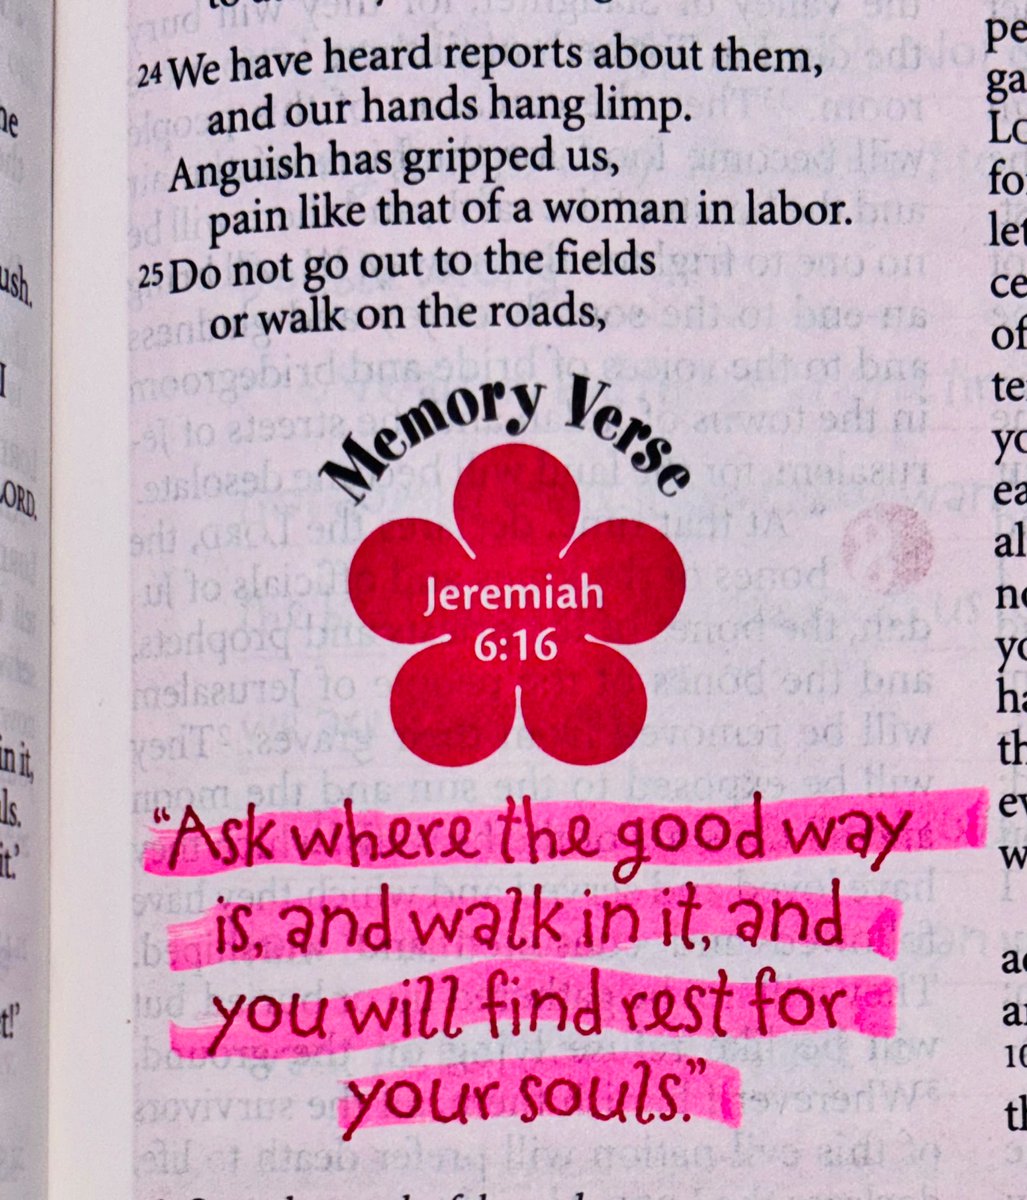 24 We have heard reports about them,
and our hands hang limp.
Anguish has gripped us,
pain like that of a woman in labor.
25 Do not go out to the fields
or walk on the roads,
Memory Verse
Jeremiah
6:16
“Ask where the good way
is, and walk in it, and
you will find rest for
your souls.”